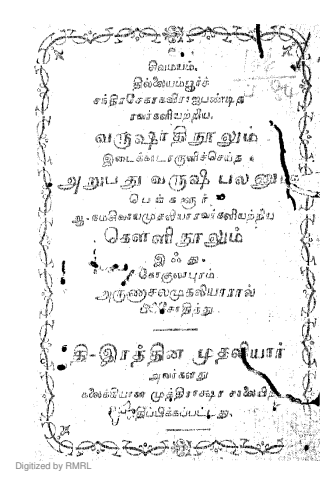 ௳
வெமயம்.
தில்லையம்பூர்ச்
சந்திரசேகரகவிராஜபண்டித
ரவர்களியற்றிய,
வருஷாதிநூலும்
இடைக்காடரருளிச்செய்த
அறுபது வருஷ பலனும்
பெங்களூர்
ஆ-நமசிவாயமுதலியாரவர்களியற்றிய
கெளளிநூலும்
இஃது
கோகுலபுரம்
அருணாசலமுதலியாரால்
சோதித்து
தி-இரத்தின முதலியார்
அவர்களது
கலைக்கியான முத்திராக்ஷர சாலையிற்
பதிப்பிக்கப்பட்டது.
Digitized by RMRL